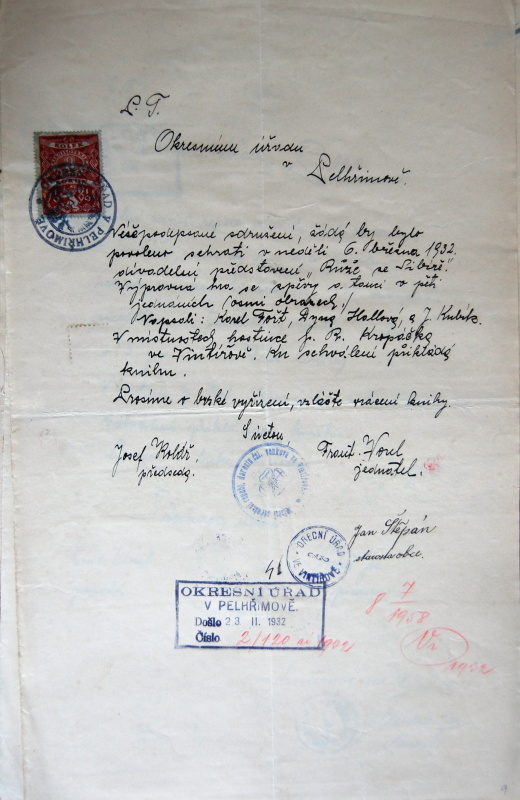 Okresnímu úřadu
v
Pelhřimově.
Nížepodepsané sdružení, žádá by bylo
povoleno sehrati v neděli 6. března 1932.
divadelní představení „Růže se Sibiře“.
Výpravná hra se zpěvy a tanci v pěti
jednáních (osmi obrazech.)
Napsali: Karel Fořt, Hallová, a J. Kubík.
V místnostech hostince p. Kropáčka
ve Vintířově. Ku schválení přikládá
knihu.
Prosíme o brzké vyřízení, vzláště vrácení knihy.
S úctou
Josef Kolář.
předseda.
Frant. Vorel
jednatel.
Jan Štěpán
starosta obce.
OBECNÍ ÚŘAD
VE VINTÍŘOVĚ
ÚŘAD V PELHŘIMOVĚ
KOLEK
OKRESNÍ ÚŘAD
V PELHŘIMOVĚ.
Došlo 23. II. 1932
Číslo 2/120
8 7
1958